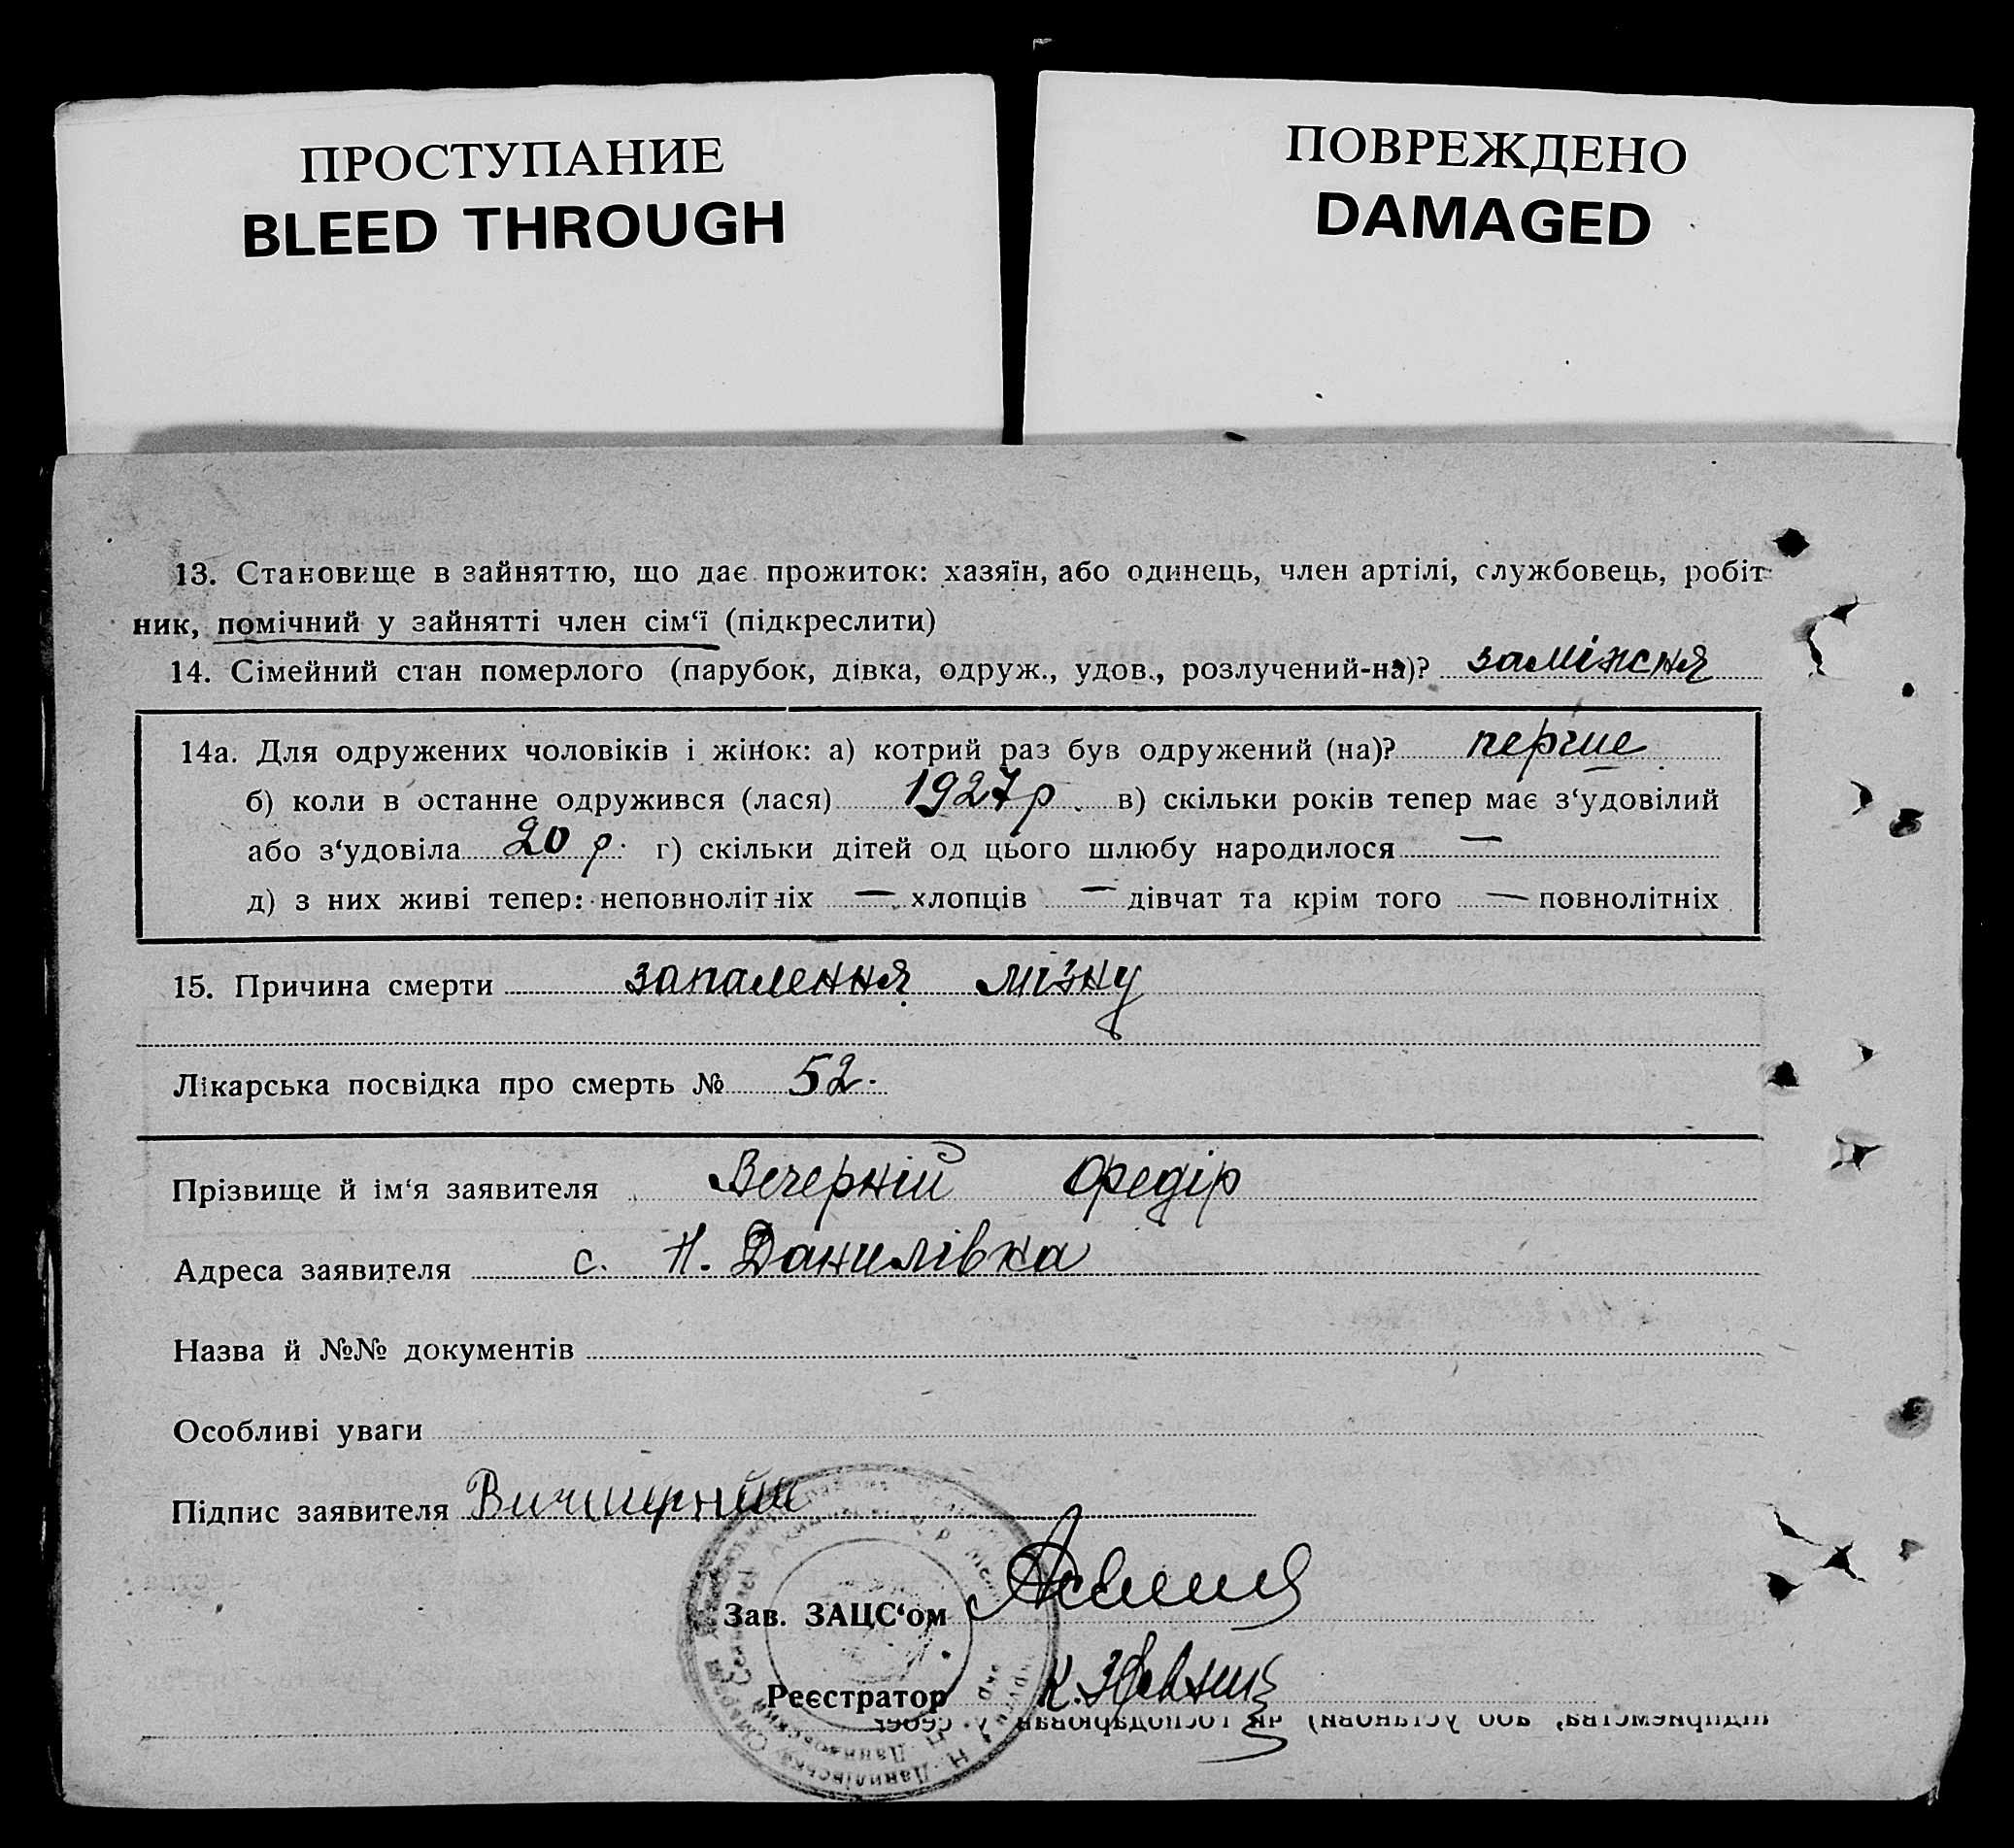 ПРОСТУПАНИЕ
BLEED THROUGH
ПОВРЕЖДЕНО
DAMAGED
13. Становище в зайняттю, що дає прожиток: хазяїн, або одинець, член артілі, службовець, робіт
ник, помічний у зайнятті член сім‘ї (підкреслити)
14. Сімейний стан померлого (парубок, дівка, одруж., удов., розлучений-на)? заміжня
14а. Для одружених чоловіків і жінок: а) котрий раз був одружений (на)? перше
б) коли в останне одружився (лася) 1927 р. в) скільки років тепер має з‘удовілий
або з‘удовіла 20 р. г) скільки дітей од цього шлюбу народилося —
д) з них живі тепер: неповнолітніх — хлопців — дівчат та крім того — повнолітніх
15. Причина смерти запалення мізку
Лікарська посвідка про смерть № 52.
Прізвище й ім‘я заявителя Вечерній Федір
Адреса заявителя с. Н. Данилівка
Назва й №№ документів
Особливі уваги
Підпис заявителя
Зав. ЗАЦС‘ом
Реєстратор
підприємства, або установи) чи господарював у себе?